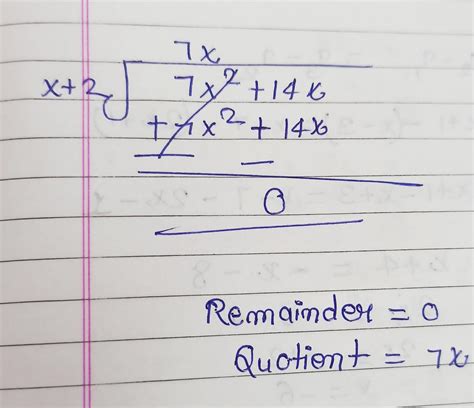 7x
x+2 7x² +14x
+7x² + 14x
0
Remainder = 0
Quotient = 7x